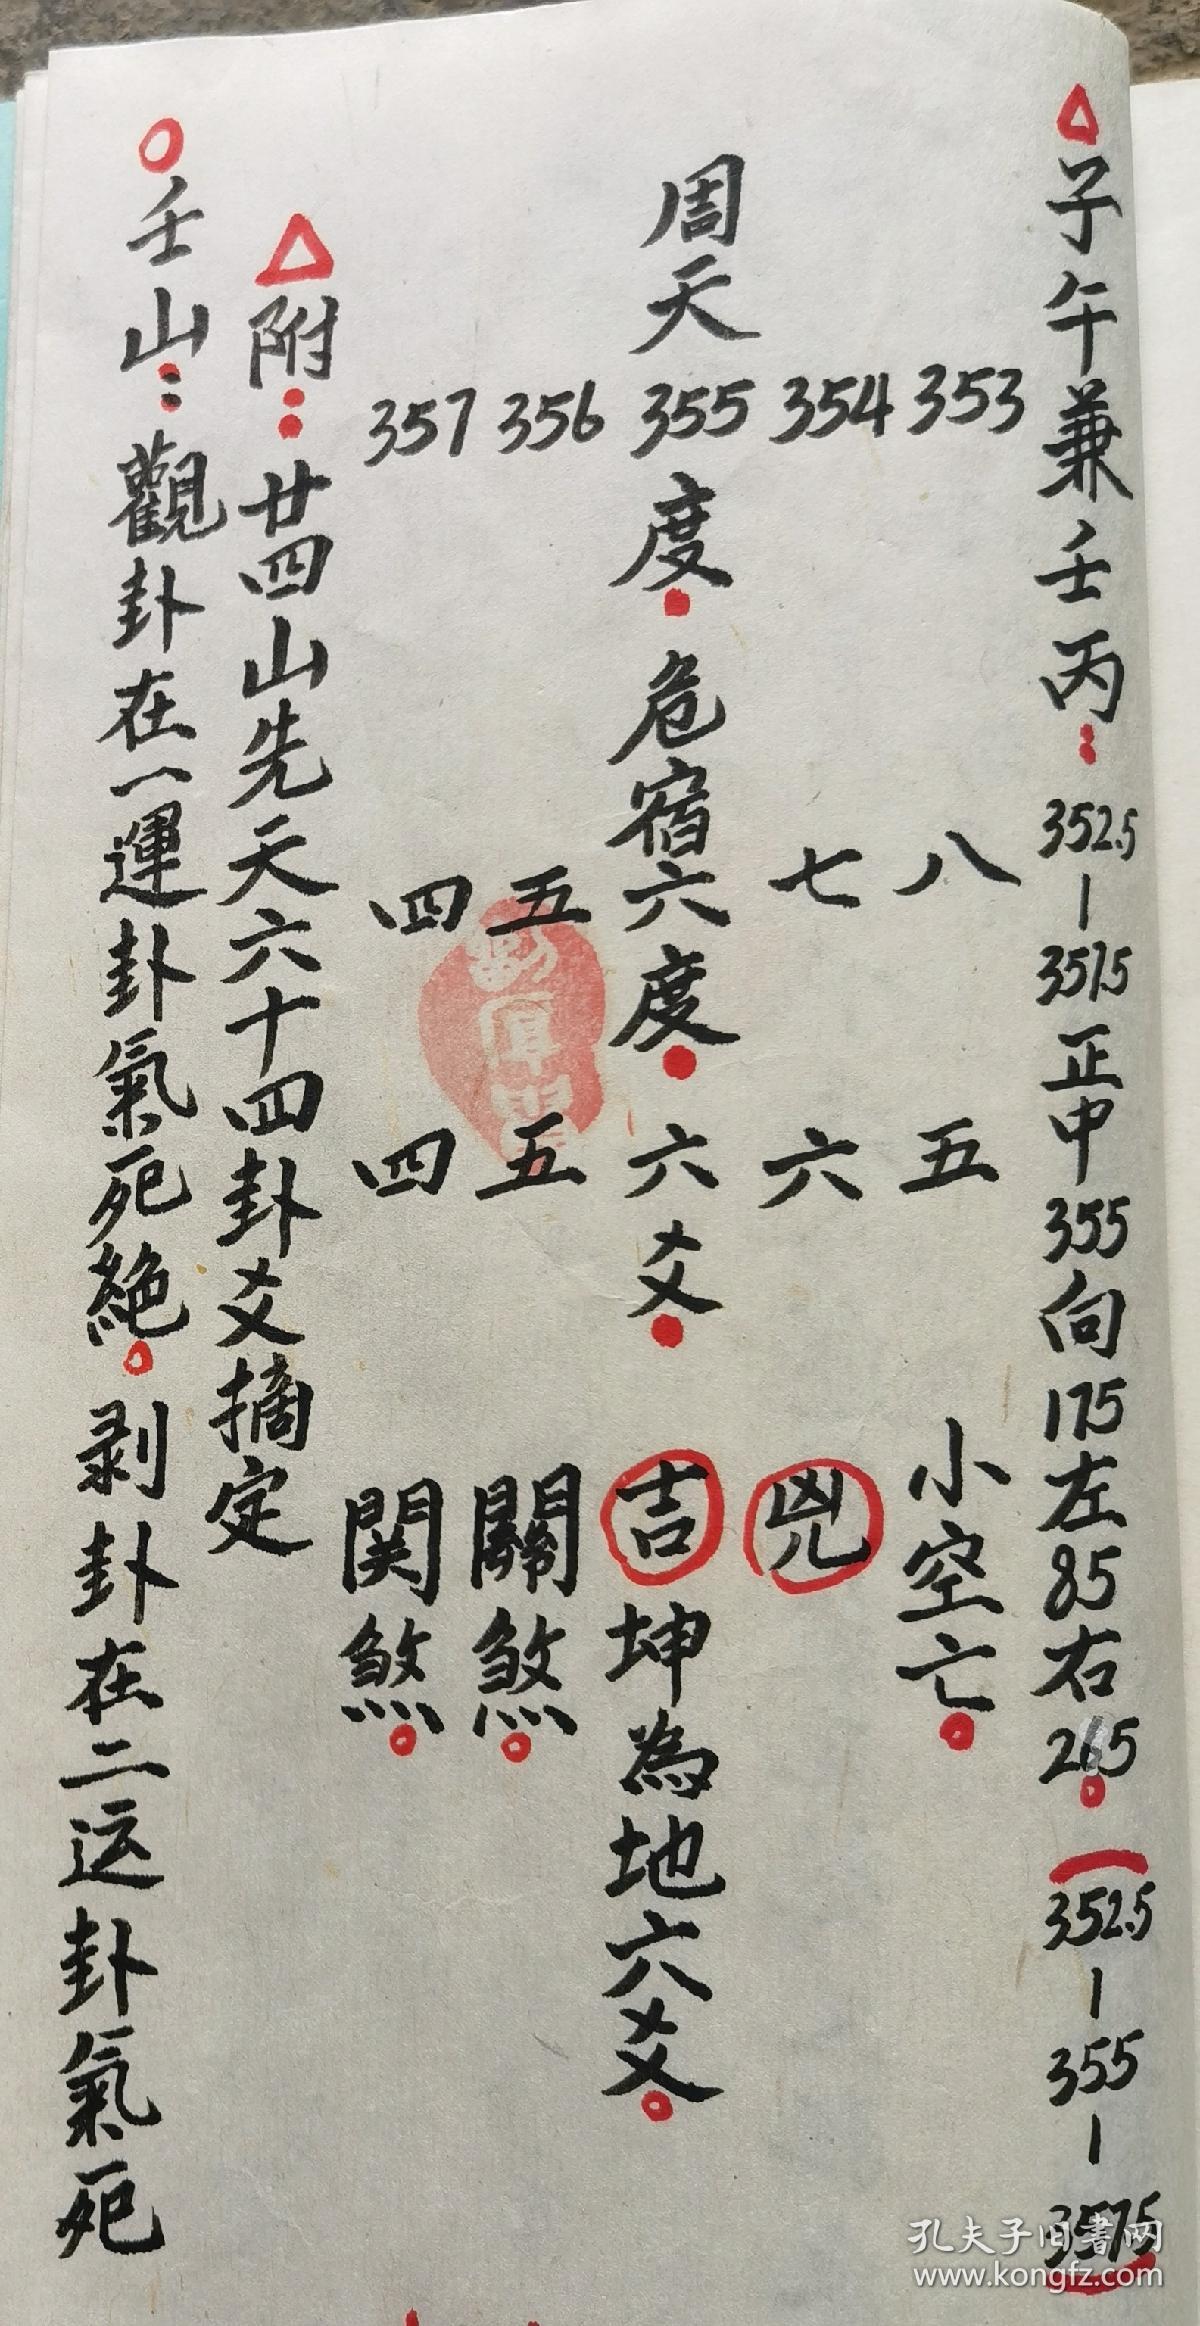 子午兼壬丙：352.5—357.5正中355向175左85右265。（352.5—355—357.5）
353 八 五 小空亡。
354 七 六 兇
周天355度．危宿六度．六爻．吉坤為地六爻。
356 五 五 關煞。
357 四 四 関煞。
附：廿四山先天六十四卦爻摘定
壬山：觀卦在一運卦氣死絕。剥卦在二运卦氣死
孔夫子旧書网
www.kongfz.com